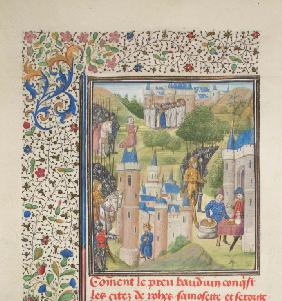 Coment le preu bauduin conq̄ist
les citez de rohez samosette et seroute